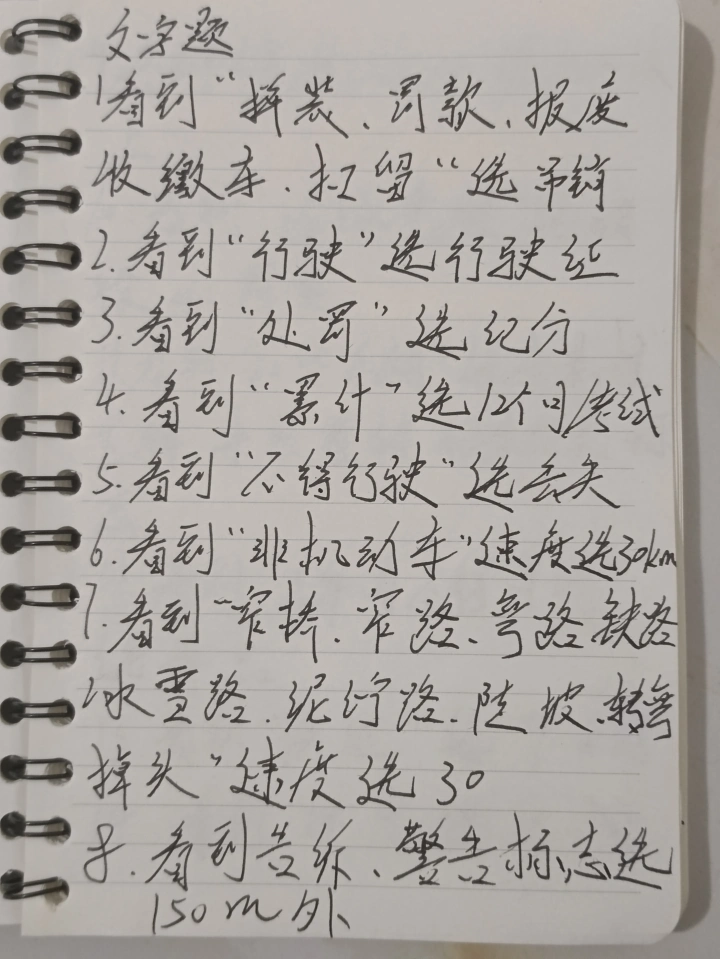 文字题
1看到"拼装、罚款、报废
收缴车、扣留"选吊销
2.看到"行驶"选行驶证
3.看到"处罚"选记分
4.看到"累计"选12个月/考试
5.看到"不得行驶"选丢失
6.看到"非机动车"速度选30km
7.看到"窄桥、窄路、弯路铁路
冰雪路、泥泞路、陡坡、转弯
掉头"速度选30
8.看到告诉、警告标志选
150m外